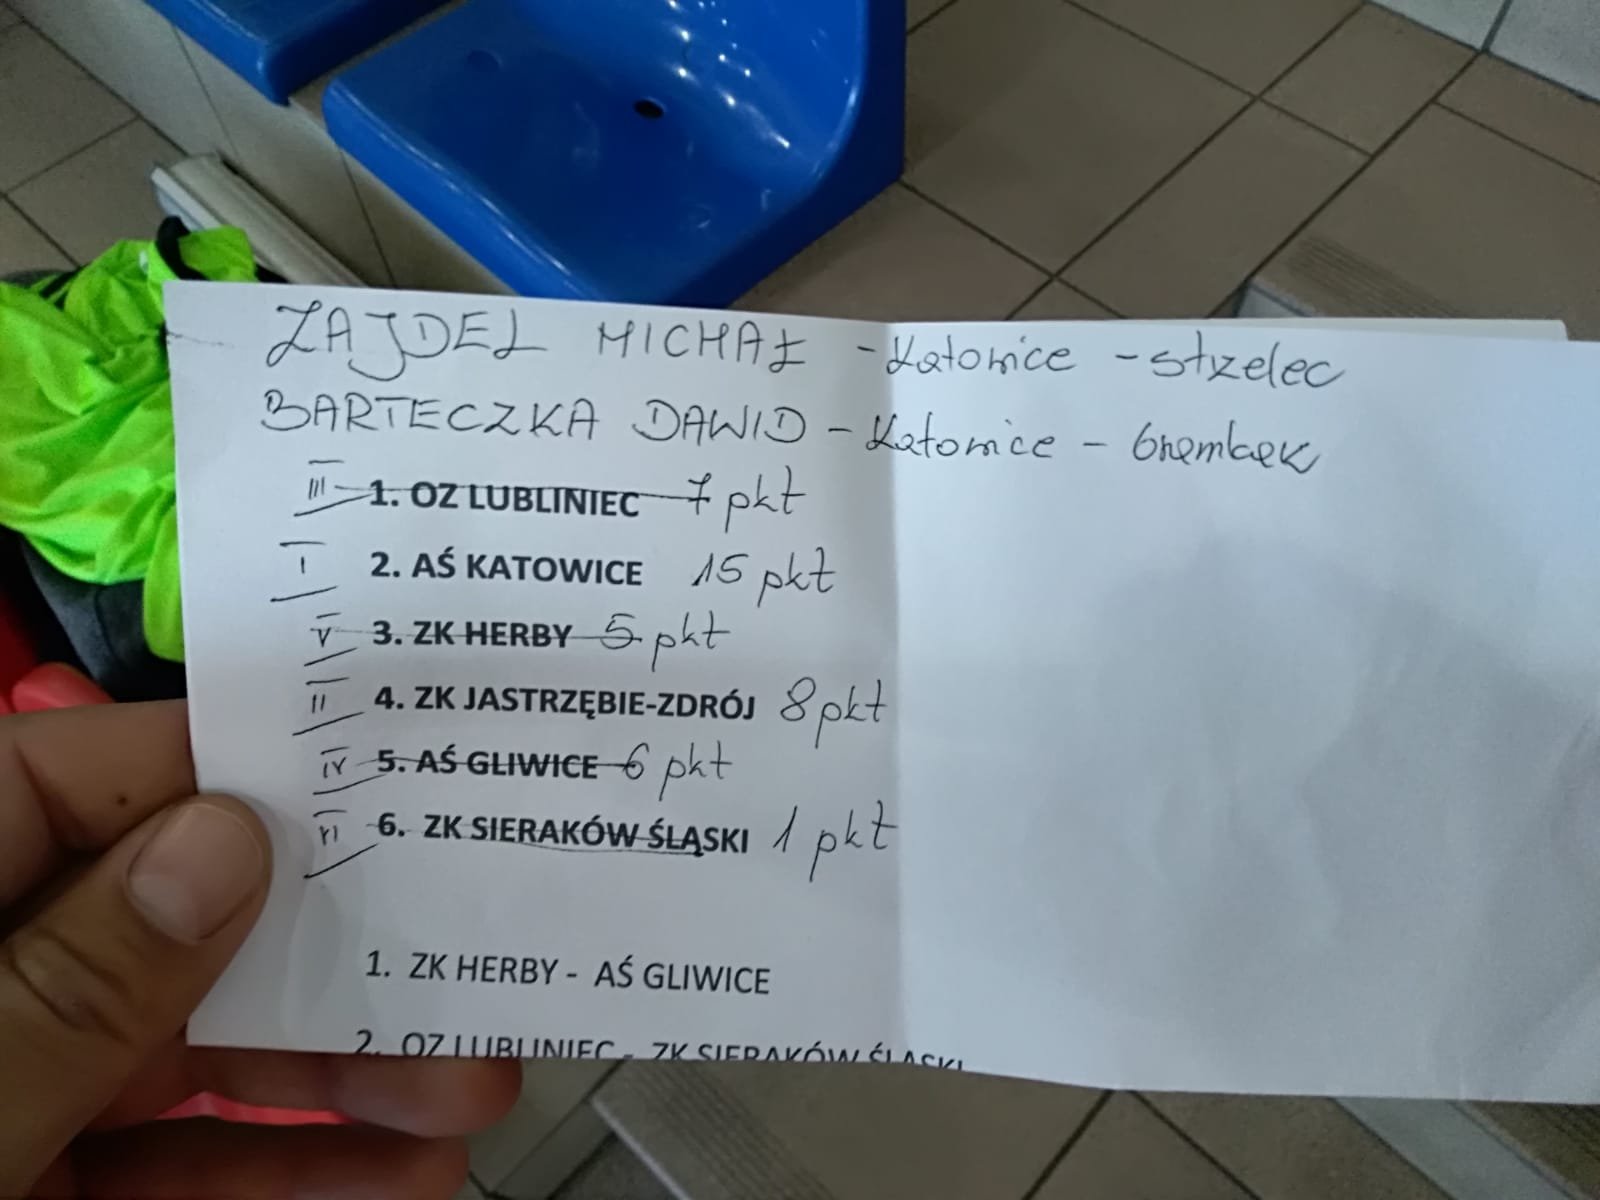 ZAJDEL MICHAŁ - Katowice - strzelec
BARTECZKA DAWID - Katowice - bramkarz
III 1. OZ LUBLINIEC 7 pkt
I 2. AŚ KATOWICE 15 pkt
V 3. ZK HERBY 5 pkt
II 4. ZK JASTRZĘBIE-ZDRÓJ 8 pkt
IV 5. AŚ GLIWICE 6 pkt
VI 6. ZK SIERAKÓW ŚLĄSKI 1 pkt
1. ZK HERBY - AŚ GLIWICE
2. OZ LUBLINIEC - ZK SIERAKÓW ŚLĄSKI